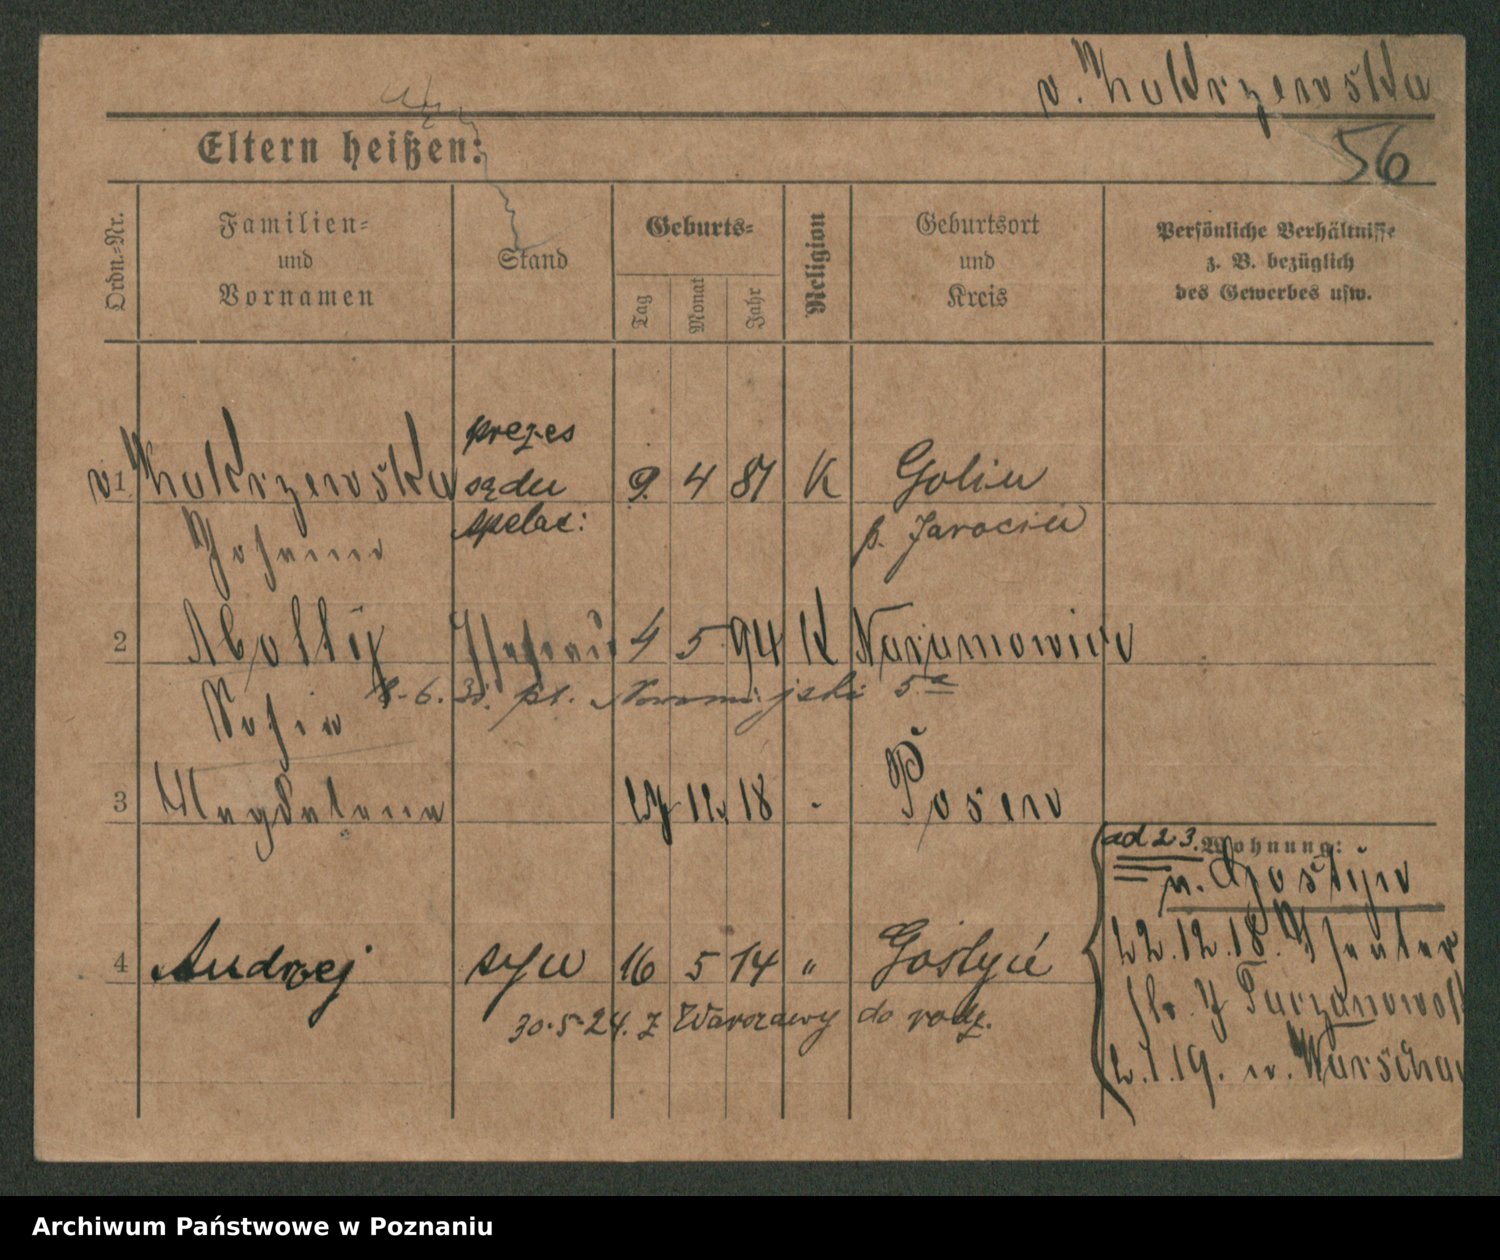 v. Zakrzewska
56
Eltern heißen:
Ordn.-Nr.
Familien-
und
Vornamen
Stand
Geburts-
Tag
Monat
Jahr
Religion
Geburtsort
und
Kreis
Persönliche Verhältnisse
z. B. bezüglich
des Gewerbes usw.
prezes
v. 1 Zakrzewska sądu 9. 4 87 K Golin
Johanna apelac: p. Jarocin
2 4 5 94 K Naramowice
Sofia 8-6. pl. Nowomiejski 5a
3 Magdalena 27 12 18 - Posen
ad 2 3. Wohnung:
n. Gostyn
4 Andrzej syn 16 5 14 " Gostyń
22.12.18.
30.5.24. z Warszawy do rodz.
2.1.19. n. Warschau
Archiwum Państwowe w Poznaniu